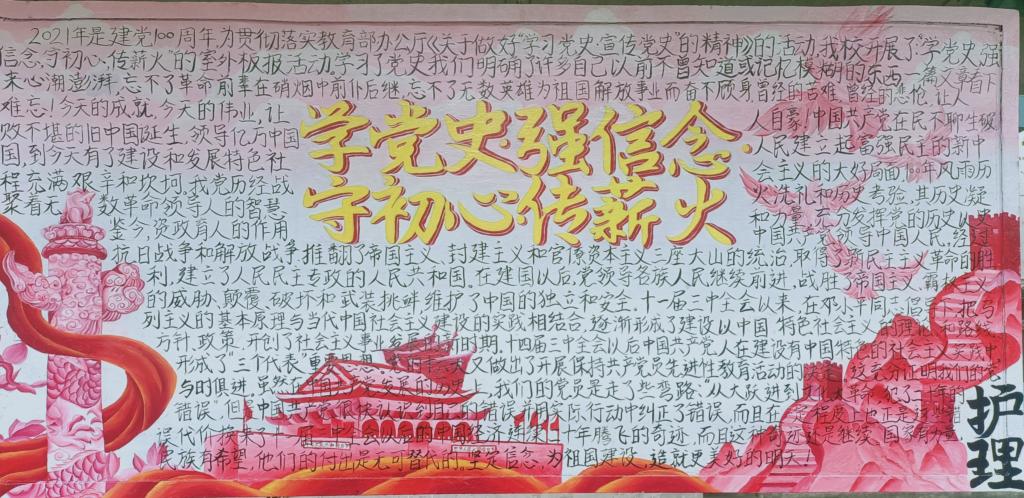 2021年是建党100周年为贯彻落实教育部办公厅《关于做好"学习党史·宣传党史"的精神》的活动,我校开展了"学党史,强
信念,守初心、传薪火"的室外板报活动。学习了党史我们明确了许多自己以前不曾知道或记忆模糊的东西,一篇文章看下
来心潮澎湃,忘不了革命前辈在硝烟中前仆后继,忘不了无数英雄为祖国解放事业而奋不顾身,曾经的苦难,曾经的悲怆,让人
难忘!今天的成就,今天的伟业,让人自豪!中国共产党在民不聊生破
败不堪的旧中国诞生,领导亿万中国人民,建立起富强民主的新中
国,到今天有了建设和发展特色社会主义的大好局面,100年风雨历
程充满艰辛和坎坷,我党历经战火洗礼和历史考验,其历史凝
聚着无数革命领导人的智慧和力量,充分发挥党的历史以史
鉴今,资政育人的作用,中国共产党领导中国人民,经过
学党史·强信念·
守初心·传薪火
抗日战争和解放战争,推翻了帝国主义、封建主义和官僚资本主义三座大山的统治,取得了新民主主义革命的胜
利,建立了人民民主专政的人民共和国。在建国以后,党领导各族人民继续前进,战胜了帝国主义、霸权主义
的威胁、颠覆、破坏和武装挑衅维护了中国的独立和安全。十一届三中全会以来,在邓小平同志倡导下,把马
列主义的基本原理与当代中国社会主义建设的实践相结合,逐渐形成了建设以中国特色社会主义的理论和路线
方针、政策,开创了社会主义事业发展的新时期。十四届三中全会以后中国共产党人在建设有中国特色的社会主义实践中
形成了"三个代表"重要思想,又做出了开展保持共产党员先进性教育活动的决定,充分证明我们的党
与时俱进。虽然在中国发展的历史上,我们的党员是走了些弯路:"从大跃进到文化大革命犯了二十年的
错误"但是中国共产党很快认识到自己的错误,用实际行动中纠正了错误,而且在程度上也正是这些错
误代价换来了十一届三中全会以后的中国经济建设二十年腾飞的奇迹,而且这种奇迹还是继续,国家有力量,
民族有希望,他们的付出是无可替代的,坚定信念,为祖国建设,造就更美好的明天!
护理